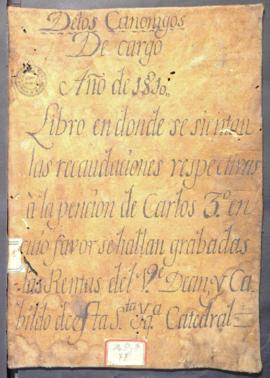 De los Canonigos
De cargo
Año de 1810,,
Libro en donde se sientan
las recaudaciones respectivas
à la pencion de Carlos 3º. en
cuio favor se hallan grabadas
las Rentas del Ve. Dean, y Ca-
bildo de esta Sta. Ya. Catedral